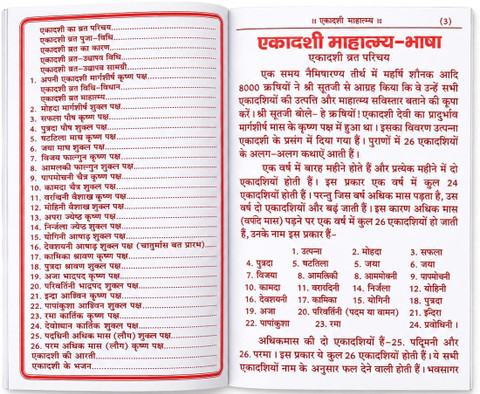 एकादशी का व्रत परिचय
एकादशी व्रत पुजा-विधि
एकादशी व्रत का कारण
एकादशी व्रत-उद्यापव विधि
एकादशी व्रत-उद्यापव सामग्री
1. अपनी एकादशी मार्गशीर्ष कृष्ण पक्ष
एकादशी व्रत विधि-विधान
एकादशी व्रत माहात्म्य
2. मोहदा मार्गशीर्ष शुक्ल पक्ष
3. सफला पौष कृष्ण पक्ष
4. पुत्रदा पौष शुक्ल पक्ष
5. षटतिला माघ कृष्ण पक्ष
6. जया माघ शुक्ल पक्ष
7. विजय फाल्गुन कृष्ण पक्ष
8. आमलकी फाल्गुन शुक्ल पक्ष
9. पापमोचनी चैत्र कृष्ण पक्ष
10. कामदा चैत्र शुक्ल पक्ष
11. वरथिनी वैशाख कृष्ण पक्ष
12. मोहिनी वैशाख शुक्ल पक्ष
13. अपरा ज्येष्ठ कृष्ण पक्ष
14. निर्जला ज्येष्ठ शुक्ल पक्ष
15. योगिनी आषाढ़ शुक्ल पक्ष
16. देवशयनी आषाढ़ शुक्ल पक्ष (चातुर्मास बत प्रारभ)
17. कामिका श्रावण कृष्ण पक्ष
18. पुत्रदा श्रावण शुक्ल पक्ष
19. अजा भाद्रपद कृष्ण पक्ष
20. परिवर्तिनी भाद्रपद शुक्ल पक्ष
21. इन्द्रा आश्विन कृष्ण पक्ष
22. पापांकुशा आश्विन शुक्ल पक्ष
23. रमा कार्तिक कृष्ण पक्ष
24. देवोथान कार्तिक शुक्ल पक्ष
25. पदधिनी अधिक मास (लौंग) शुक्ल पक्ष
26. परम अधिक मास (लौंग) कृष्ण पक्ष
एकादशी की आरती
एकादशी के भजन
॥ एकादशी माहात्म्य ॥ (3)
एकादशी माहात्म्य-भाषा
एकादशी व्रत परिचय
एक समय नैमिषारण्य तीर्थ में महर्षि शौनक आदि
8000 ऋषियों ने श्री सूतजी से आग्रह किया कि वे उन्हें सभी
एकादशियों की उत्पत्ति और माहात्म्य सविस्तार बताने की कृपा
करें। श्री सूतजी बोले- हे ऋषियों! एकादशी देवी का प्रादुर्भाव
मार्गशीर्ष मास के कृष्ण पक्ष में हुआ था। इसका विवरण उत्पन्ना
एकादशी के प्रसंग में दिया गया हैं। पुराणों में 26 एकादशियों
के अलग-अलग कथाएँ आती हैं।
एक वर्ष में बारह महीने होते हैं और प्रत्येक महीने में दो
एकादशियाँ होती हैं। इस प्रकार एक वर्ष में कुल 24
एकादशियाँ होती हैं। परन्तु जिस वर्ष अधिक मास पड़ता है, उस
वर्ष दो एकादशियाँ और बढ़ जाती हैं। इस कारण अधिक मास
(वर्पदि मास) पड़ने पर एक वर्ष में कुल 26 एकादशियाँ हो जाती
हैं,उनके नाम इस प्रकार हैं-
1. उत्पना 2. मोहदा 3. सफला
4. पुत्रदा 5. षटतिला 6. जया 6. जया
7. विजया 8. आमलिकी 8. आममोकनी 9. पापमोचनी
10. कामदा 11. वरादविनी 14. निर्जला 12. योहिनी
16. देवशयनी 17. कामिका 15. योगिनी 18. पुत्रदा
19. अजा 20. परिवर्तिनी (पदम या वामन) 21. इन्दिरा
22. पापांकुशा 23. रमा 24. प्रवोधिनी।
अधिकमास की दो एकादशियाँ हैं-25. पद्मिनी और
26. परमा। इस प्रकार ये कुल 26 एकादशियाँ होती हैं। ये सभी
एकादशियाँ नाम के अनुसार फल देने वाली होती हैं। भवसागर